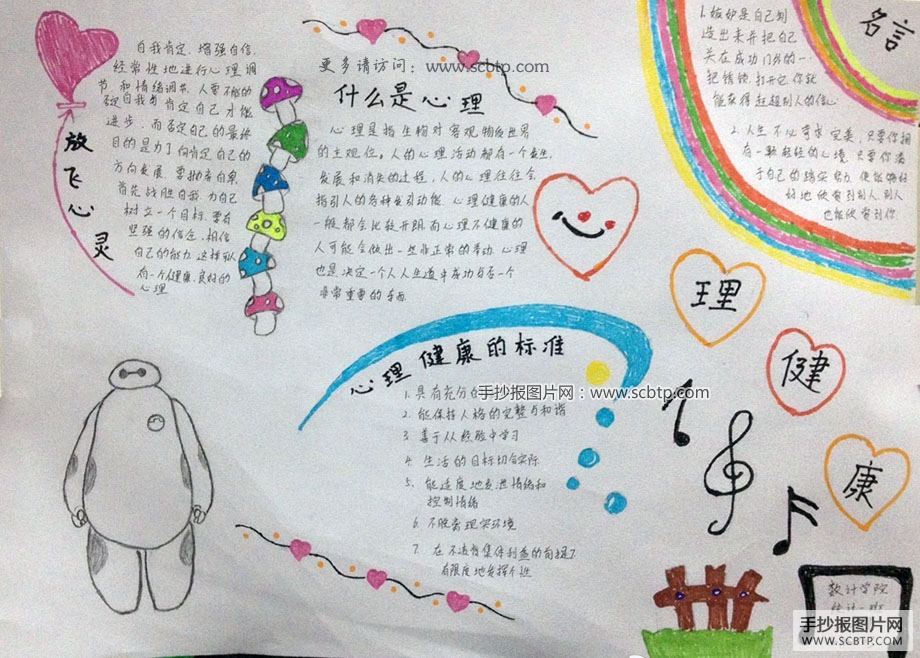 放飞心灵
自我肯定，增强自信，
经常性地进行心理调
节和情绪调节，人要不断的
否定自我与肯定自己才能
进步，而否定自己的最终
目的是为了向肯定自己的
方向发展
首先战胜自我，为自己
树立一个目标，要有
坚强的信念，相信
自己的能力，这样可以
有一个健康、良好的
心理
更多请访问：www.scbtp.com
什么是心理
心理是指生物对客观物质世界
的主观反应。人的心理活动都有一个发生，
发展和消失的过程，人的心理往往会
指引人的各种行动 心理健康的人
一般都会比较开朗而心理不健康的
人可能会做出一些非正常的举动，心理
也是决定一个人人生道路中成功与否一个
非常重要的方面
名言
1.嫉妒是自己制
造出来并把自己
关在成功门外的一
把锈锁，打开它，你就
能获得赶超别人的信心
2.人生不必苛求完美，只要你拥
有一颗轻轻的心境，只要你满
于自己的踏实努力，便能够好
好地欣赏到别人，别人
也能欣赏到你
心理健康的标准
1.具有充分
手抄报图片网：www.scbtp.com
2.能保持人格的完整与和谐
3.善于从经验中学习
4.生活的目标切合实际
5.能适度地发泄情绪和
控制情绪
6.不脱离现实环境
7.在不违背集体利益的前提下
有限度地发挥个性
理
健
康
数计学院
手抄报图片网
SCBTP.COM